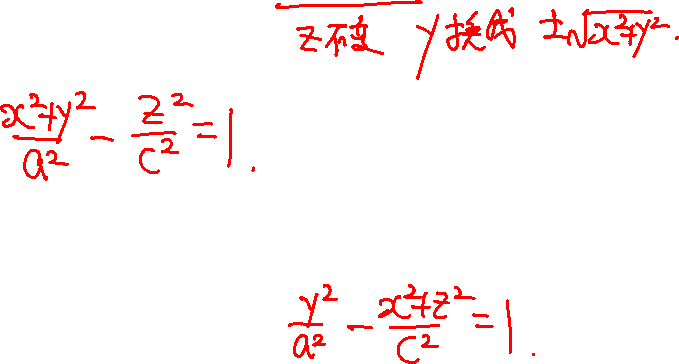 z不变 y换成 ±√(x²+y²).
(x²+y²)/a² - z²/c² = 1.
y²/a² - (x²+z²)/c² = 1.